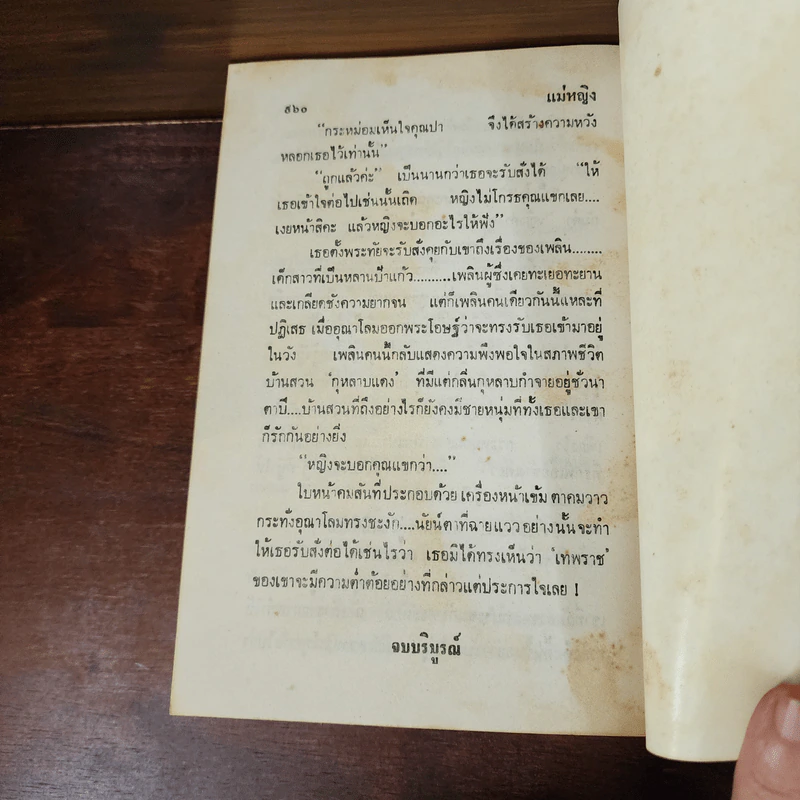 ๕๖๐
แม่หญิง
“กระหม่อมเห็นใจคุณปา จึงได้สร้างความหวัง
หลอกเธอไว้เท่านั้น”
“ถูกแล้วค่ะ” เป็นนานกว่าเธอจะรับสั่งได้ “ให้
เธอเข้าใจต่อไปเช่นนั้นเถิด หญิงไม่โกรธคุณแขกเลย....
เงยหน้าสิคะ แล้วหญิงจะบอกอะไรให้ฟัง”
เธอตั้งพระทัยจะรับสั่งคุยกับเขาถึงเรื่องของเพลิน........
เด็กสาวที่เป็นหลานป้าแก้ว..........เพลินผู้ซึ่งเคยทะเยอทะยาน
และเกลียดชังความยากจน แต่ก็เพลินคนเดียวกันนี้แหละที่
ปฏิเสธ เมื่ออุณาโลมออกพระโอษฐ์ว่าจะทรงรับเธอเข้ามาอยู่
ในวัง เพลินคนนี้กลับแสดงความพึงพอใจในสภาพชีวิต
บ้านสวน ‘กุหลาบแดง’ ที่มีแต่กลิ่นกุหลาบกำจายอยู่ชั่วนา
ตาปี....บ้านสวนที่ถึงอย่างไรก็ยังคงมีชายหนุ่มที่ทั้งเธอและเขา
ก็รักกันอย่างยิ่ง
“หญิงจะบอกคุณแขกว่า....”
ใบหน้าคมสันที่ประกอบด้วย เครื่องหน้าเข้ม ตาคมวาว
กระทั่งอุณาโลมทรงชะงัก....นัยน์ตาที่ฉายแววอย่างนั้นจะทำ
ให้เธอรับสั่งต่อได้เช่นไรว่า เธอมิได้ทรงเห็นว่า ‘เทพราช’
ของเขาจะมีความต่ำต้อยอย่างที่กล่าวแต่ประการใดเลย !
จบบริบูรณ์